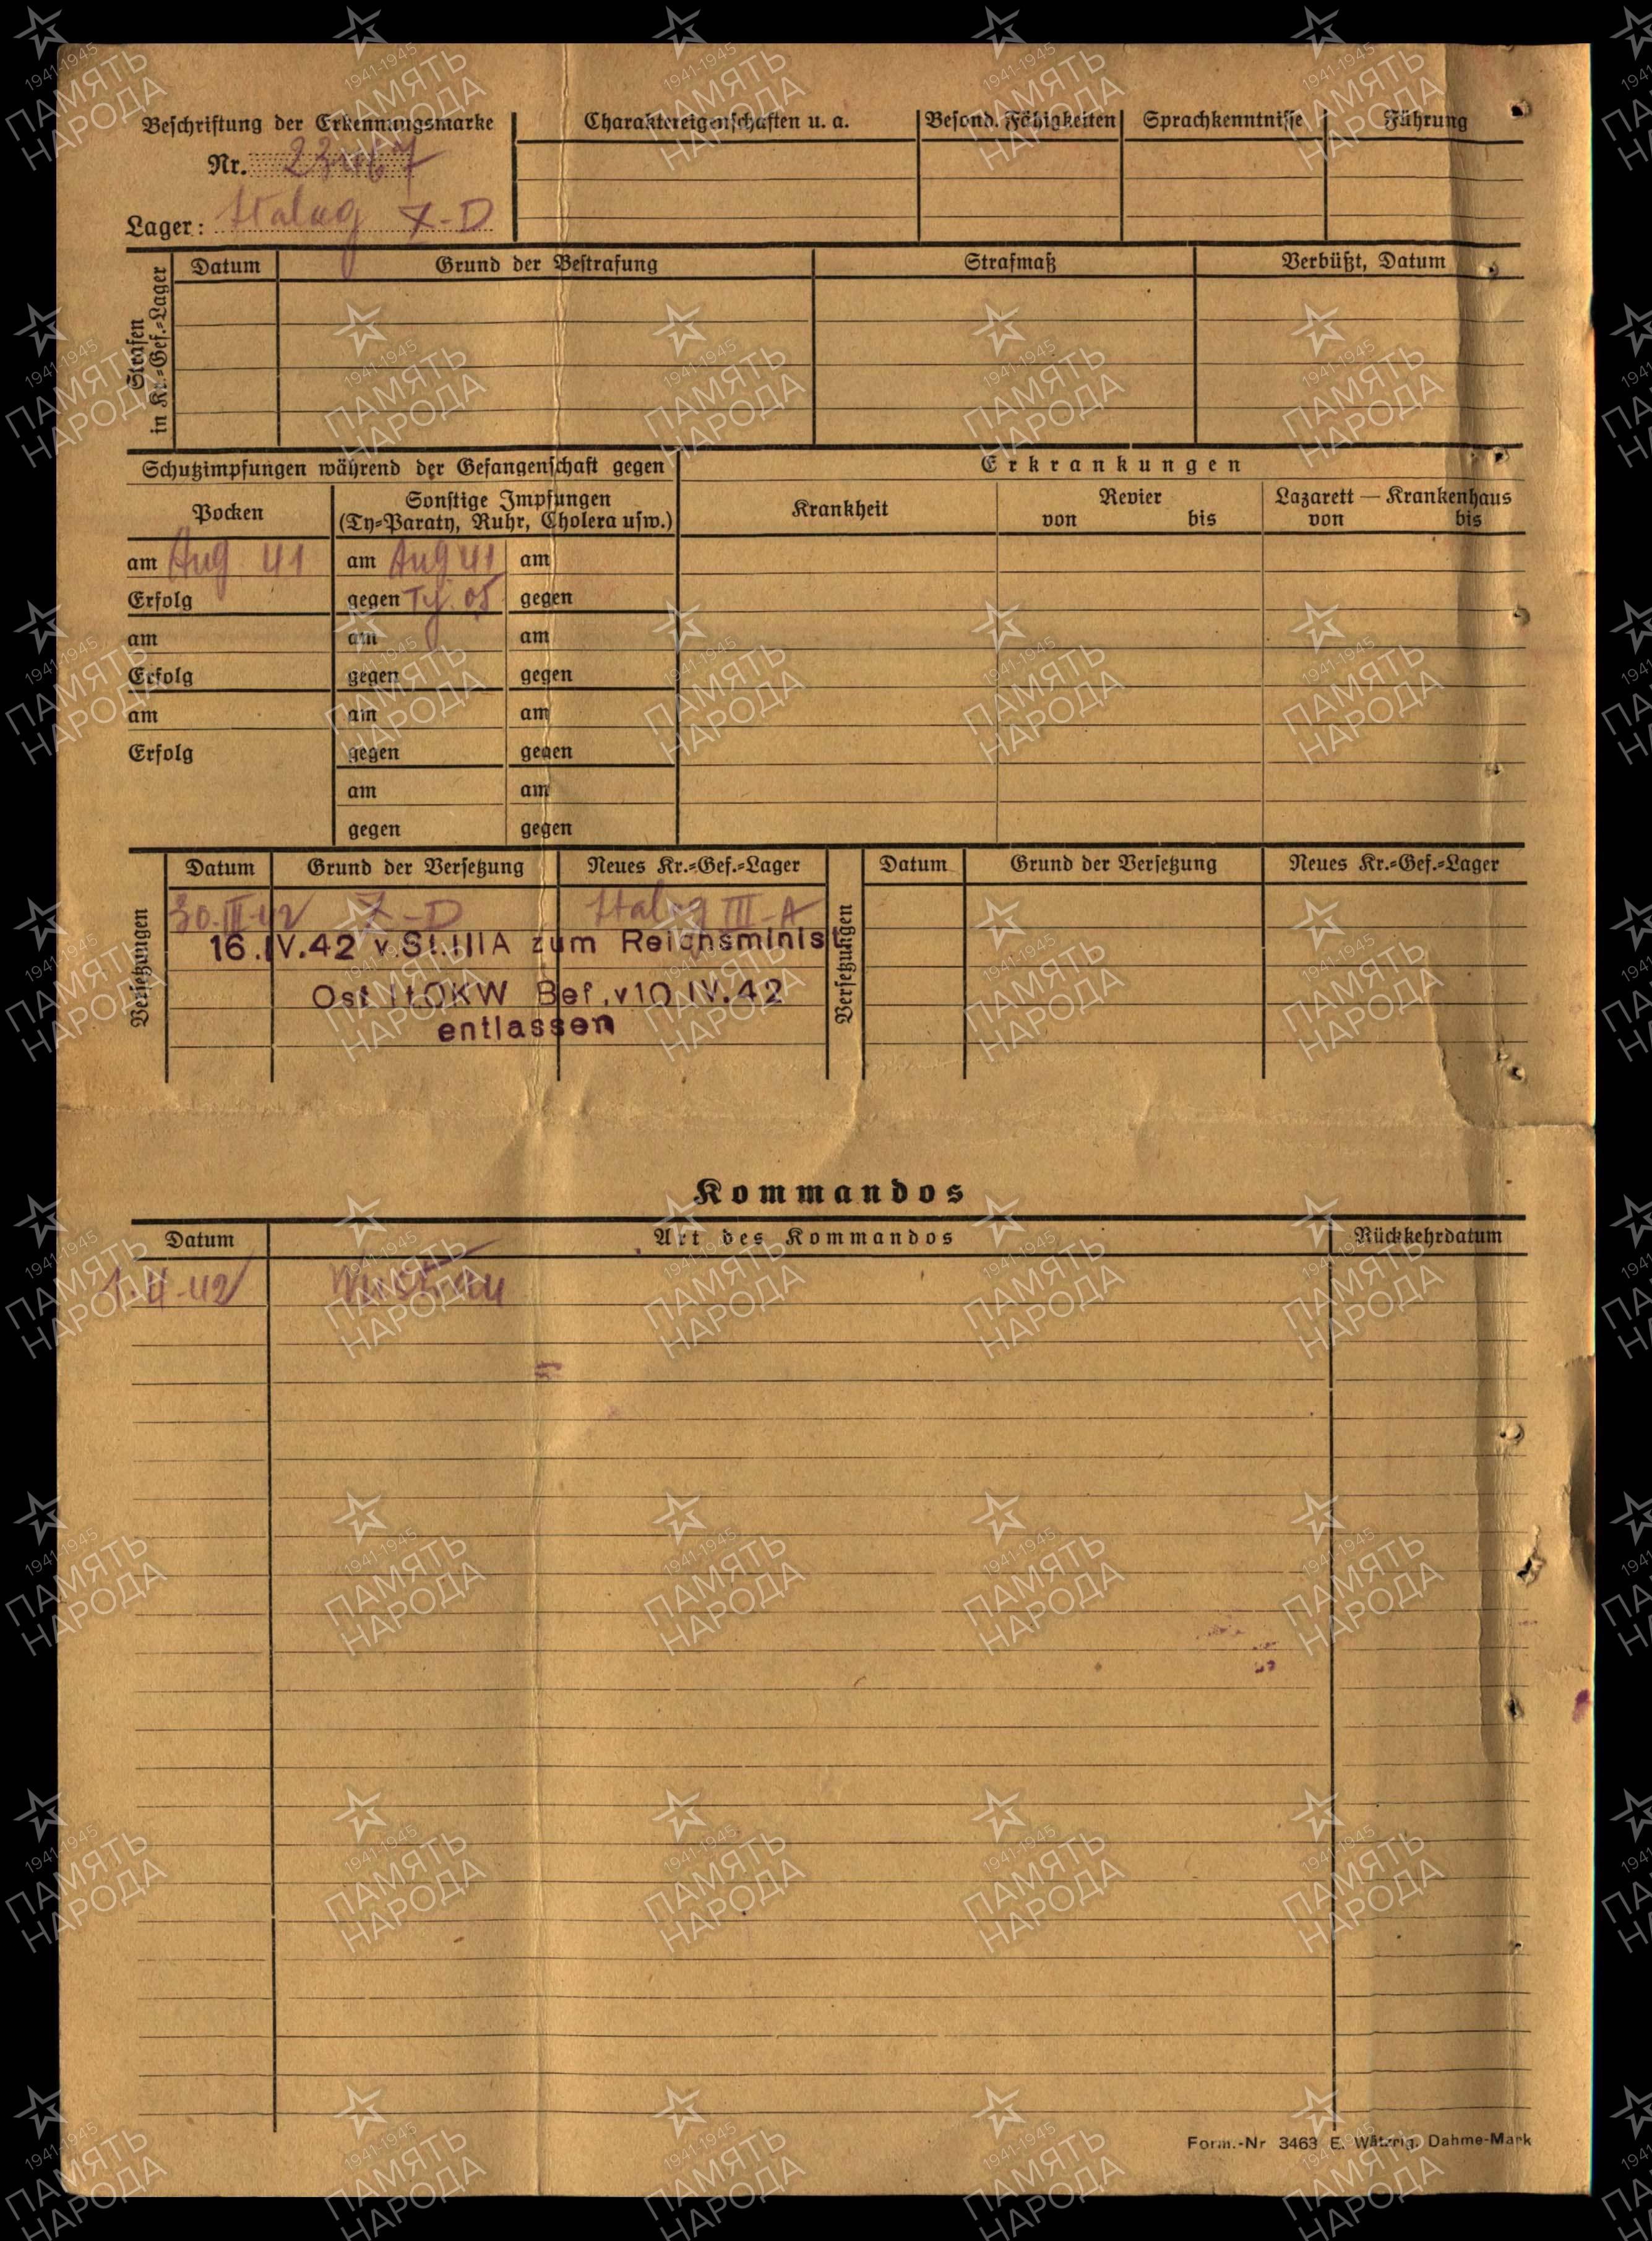 Beschriftung der Erkennungsmarke
Nr.
Lager: Stalag X-D
Charaktereigenschaften u. a.
Besond. Fähigkeiten
Sprachkenntnisse
Führung
Strafen
in Kr.=Gef.=Lager
Datum
Grund der Bestrafung
Strafmaß
Verbüßt, Datum
Schutzimpfungen während der Gefangenschaft gegen
Pocken
Sonstige Impfungen
(Ty=Paraty, Ruhr, Cholera usw.)
am Aug 41 am Aug 41 am
Erfolg gegen gegen
am am am
Erfolg gegen gegen
am am am
Erfolg gegen gegen
am am
gegen gegen
Erkrankungen
Krankheit
Revier
von bis
Lazarett — Krankenhaus
von bis
Versetzungen
Datum Grund der Versetzung Neues Kr.=Gef.=Lager
30.III.42 X-D Stalag III-A
16.IV.42 v.St.IIIA zum Reichsminist
Ost ltOKW Bef.v10.IV.42
entlassen
Versetzungen
Datum Grund der Versetzung Neues Kr.=Gef.=Lager
Kommandos
Datum Art des Kommandos Rückkehrdatum
1.4.42 Wustrau
Form.-Nr 3463 E. Wätzrig, Dahme-Mark
1941-1945
ПАМЯТЬ
НАРОДА